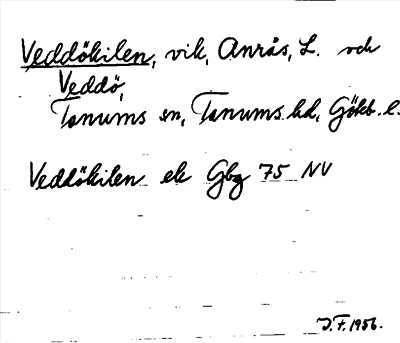 Veddökilen, vik, Anrås, L. och
Veddö,
Tanums sn, Tanums hd, Göteb. l.
Veddökilen ek Gbg 75 NV
J.F. 1956.